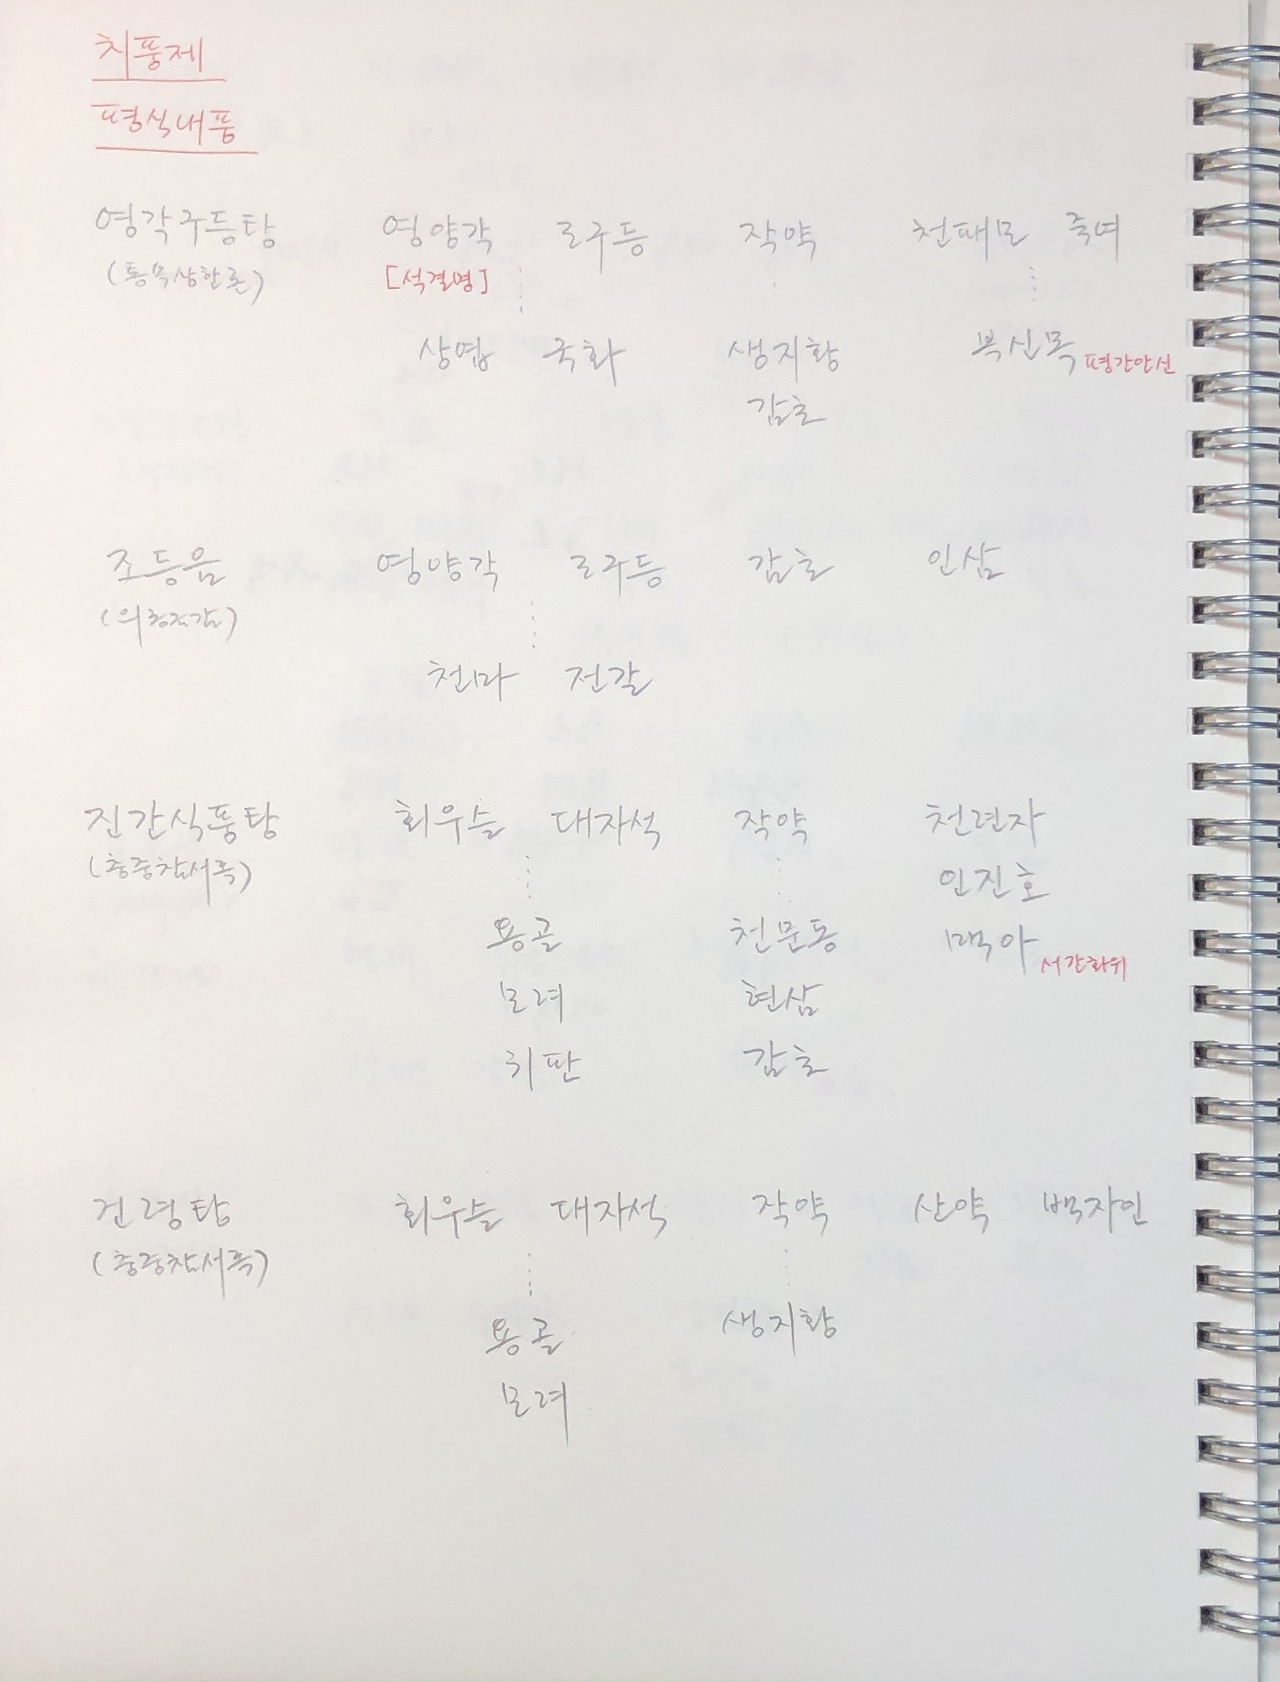 치풍제
평식내풍
영각구등탕 영양각 조구등 작약 천패모 죽여
(통속상한론) [석결명]
상엽 국화 생지황 복신목 평간안신
감초
조등음 영양각 조구등 감초 인삼
(의종금감)
천마 전갈
진간식풍탕 회우슬 대자석 작약 천련자
(충중참서록) 인진호
용골 천문동 맥아 서간화위
모려 현삼
귀판 감초
건령탕 회우슬 대자석 작약 산약 백자인
(충중참서록)
용골 생지황
모려